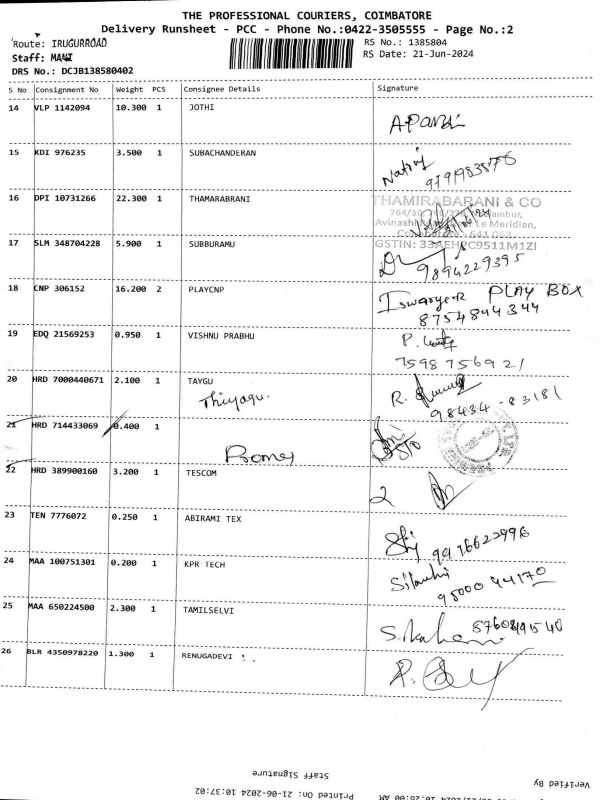 THE PROFESSIONAL COURIERS, COIMBATORE
Delivery Runsheet - PCC - Phone No.:0422-3505555 - Page No.:2
Route: IRUGURROAD
RS No.: 1385804
Staff: MANI
RS Date: 21-Jun-2024
DRS No.: DCJB138580402
S No Consignment No Weight PCS Consignee Details Signature
14 VLP 1142094 10.300 1 JOTHI
15 KDI 976235 3.500 1 SUBACHANDERAN
16 DPI 10731266 22.300 1 THAMARABRANI
THAMIRABARANI & CO
GSTIN: 33AEHPC9511M1ZI
17 SLM 348704228 5.900 1 SUBBURAMU
9894229395
18 CNP 306152 16.200 2 PLAYCNP
PLAY BOX
8754844344
19 EDQ 21569253 0.950 1 VISHNU PRABHU
7598756921
20 HRD 7000440671 2.100 1 TAYGU
Thiyagu.
98434-83181
21 HRD 714433069 0.400 1
22 HRD 389900160 3.200 1 TESCOM
2
23 TEN 7776072 0.250 1 ABIRAMI TEX
9976622996
24 MAA 100751301 0.200 1 KPR TECH
95000 44170
25 MAA 650224500 2.300 1 TAMILSELVI
26 BLR 4350978220 1.300 1 RENUGADEVI
Staff Signature
Verified By
Printed On: 21-06-2024 10:37:02